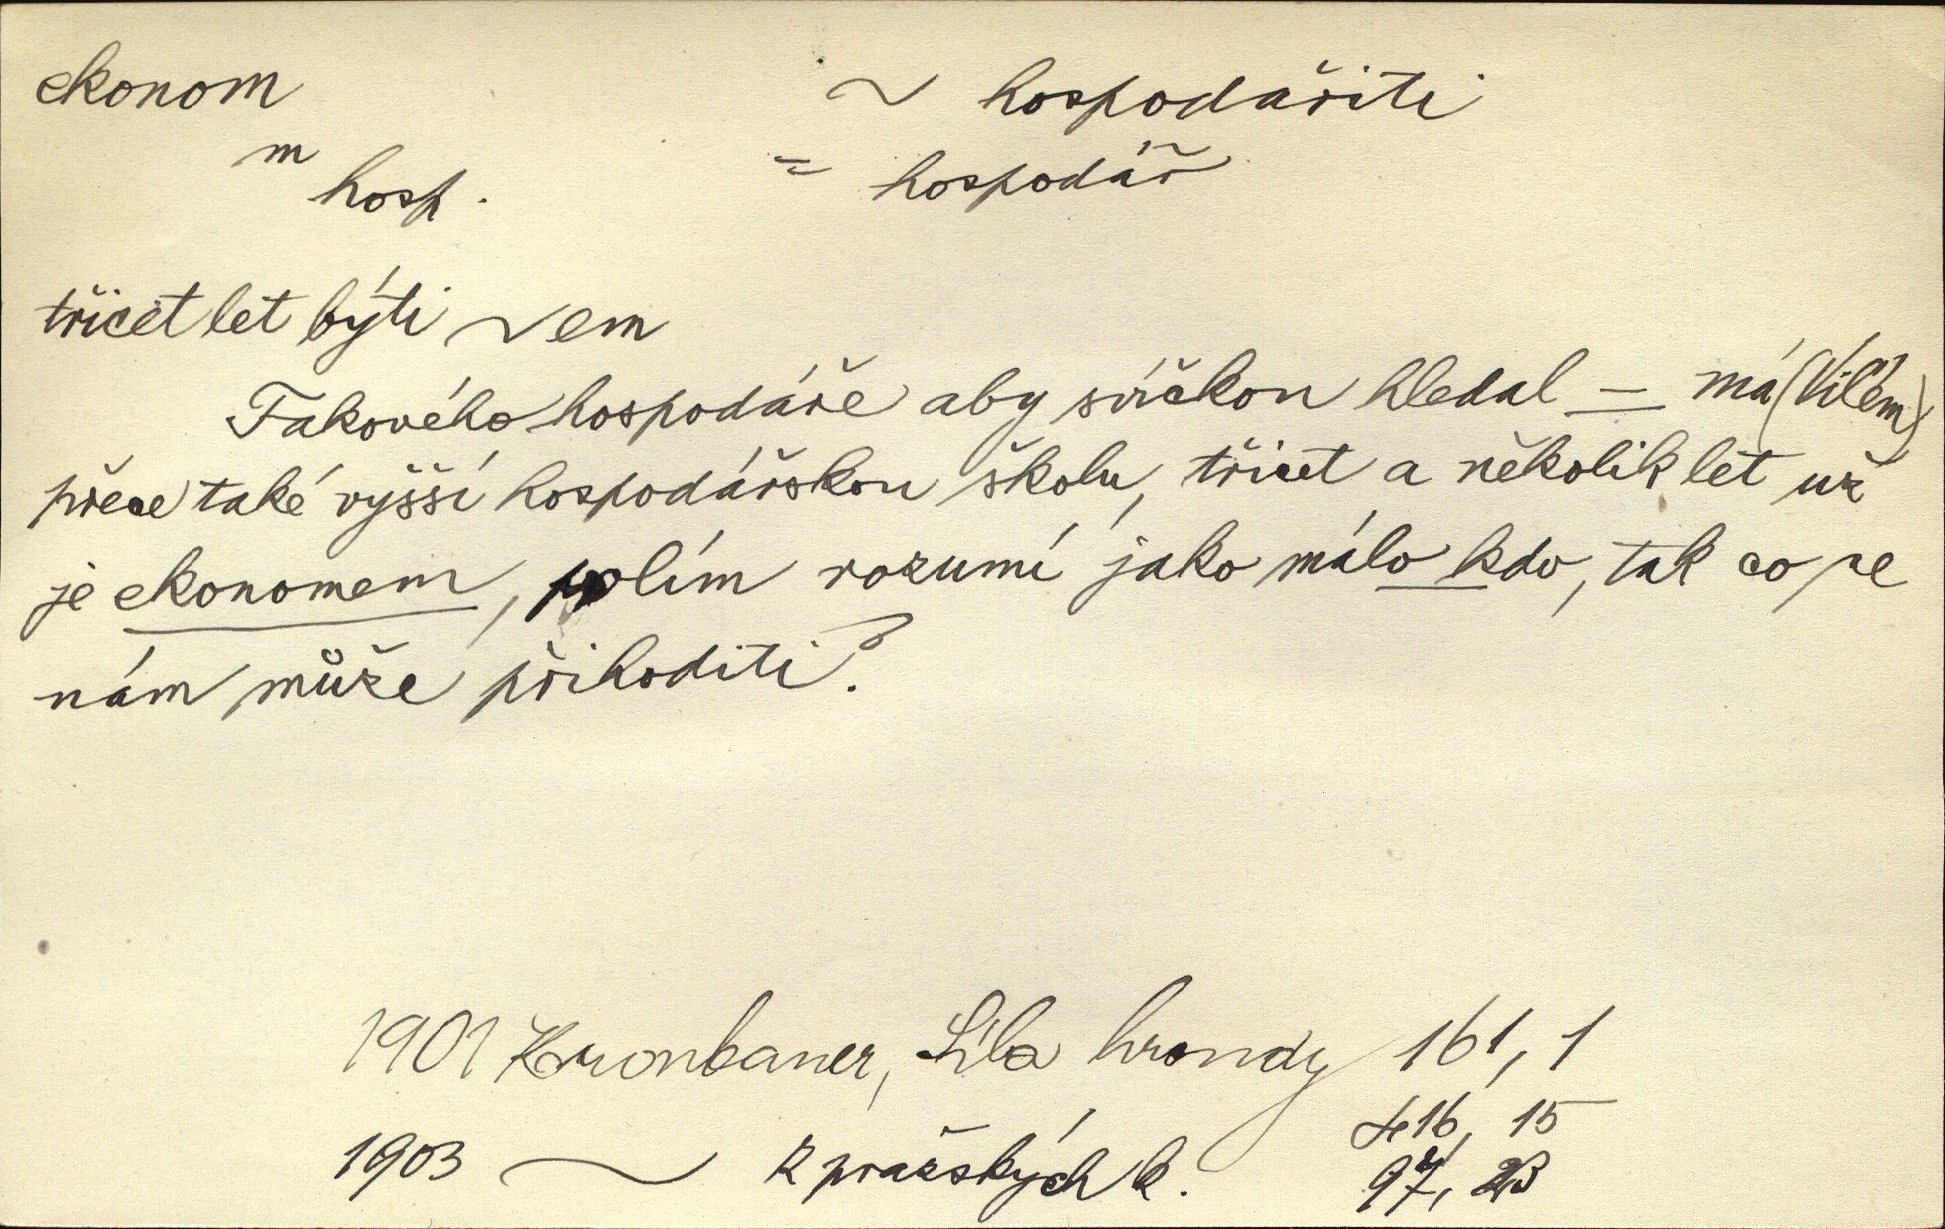 ekonom ~ hospodařiti
m = hospodář
hosp.
třicet let býti ~em
Takového hospodáře aby svíčkou hledal — má (Vilém)
přece také vyšší hospodářskou školu, třicet a několik let už
je ekonomem, polím rozumí jako málo kdo, tak co se
nám může přihoditi?
1901 Kronbauer, Síla hroudy 161, 1
416, 15
1903 ~ Z pražských k. 97, 23